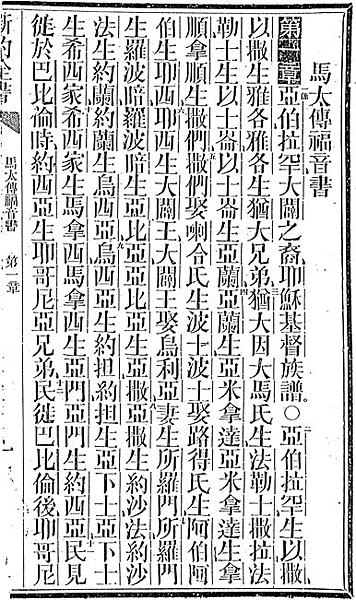 馬太傳福音書
第一章亞伯拉罕大闢之裔耶穌基督族譜。○亞伯拉罕生以撒
以撒生雅各雅各生猶大兄弟猶大因大馬氏生法勒士撒拉法
勒士生以士崙以士崙生亞蘭亞蘭生亞米拿達亞米拿達生拿
順拿順生撒們撒們娶喇合氏生波士波士娶路得氏生阿伯阿
伯生耶西耶西生大闢王大闢王娶烏利亞妻生所羅門所羅門
生羅波暗羅波暗生亞比亞亞比亞生亞撒亞撒生約沙法約沙
法生約蘭約蘭生烏西亞烏西亞生約担約担生亞下士亞下士
生希西家希西家生馬拿西馬拿西生亞門亞門生約西亞民見
徙於巴比倫時約西亞生耶哥尼亞兄弟民徙巴比倫後耶哥尼
新約全書
馬太傳福音書
第一章